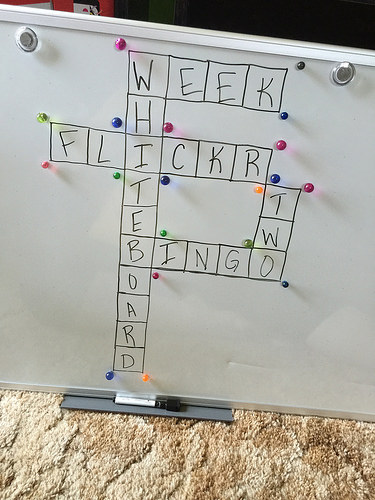 WEEK
WHITEBOARD
FLICKR
TWO
BINGO